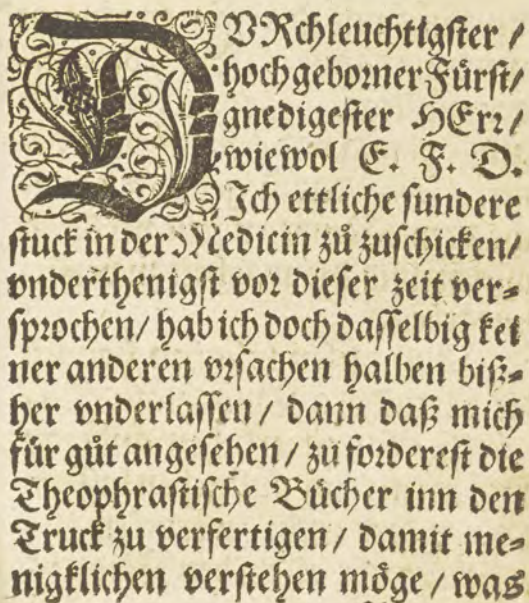 DVRchleuchtigster /
hochgeborner Fürst/
gnedigester HErr/
wiewol E. F. D.
Ich ettliche sundere
stuck in der Medicin zů zuschicken/
vnderthenigst vor dieser zeit ver-
sprochen/ hab ich doch dasselbig kei
ner anderen vrsachen halben biß-
her vnderlassen / dann daß mich
für gůt angesehen / zu forderest die
Theophrastische Bücher inn den
Truck zu verfertigen / damit me-
nigklichen verstehen möge / was